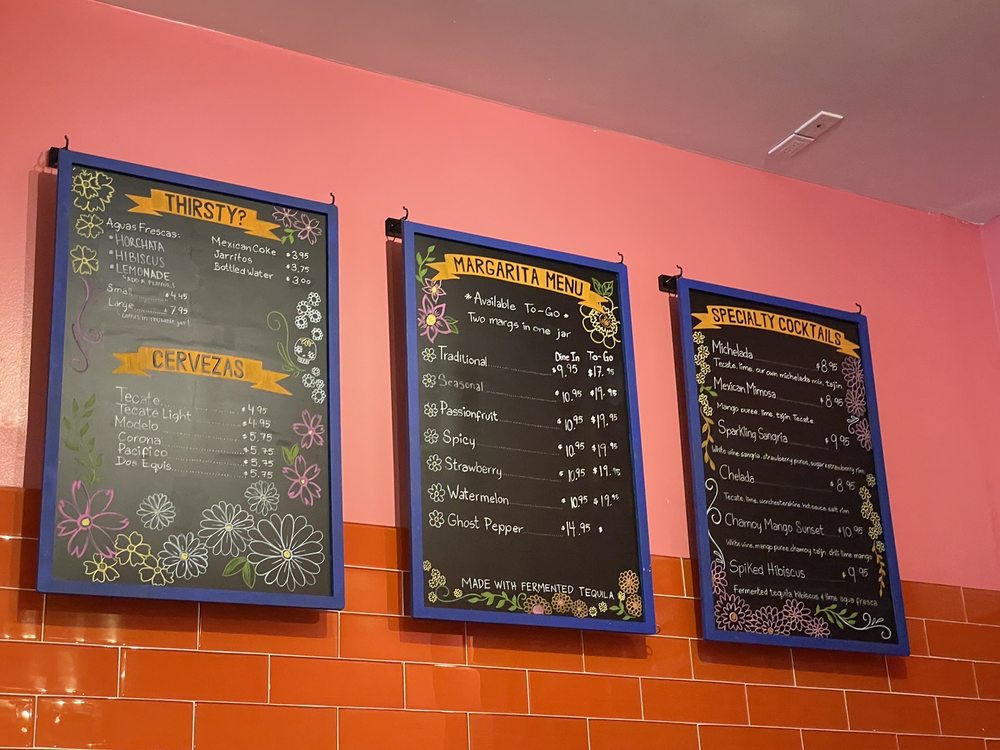 THIRSTY?
Aguas Frescas:
*HORCHATA
*HIBISCUS
*LEMONADE
Small $4.45
Large $7.95
Mexican Coke $3.95
Jarritos $3.75
Bottled Water $3.00
CERVEZAS
Tecate $4.95
Tecate Light $4.95
Modelo $5.75
Corona $5.75
Pacifico $5.75
Dos Equis $5.75
MARGARITA MENU
*Available To-Go*
Two margs in one jar
Dine In To-Go
Traditional $9.95 $17.95
Seasonal $10.95 $19.95
Passionfruit $10.95 $19.95
Spicy $10.95 $19.95
Strawberry $10.95 $19.95
Watermelon $10.95 $19.95
Ghost Pepper $14.95
MADE WITH FERMENTED TEQUILA
SPECIALTY COCKTAILS
Michelada $8.95
Tecate, lime, our own michelada mix, tajin
Mexican Mimosa $8.95
Mango puree, lime, tajin, Tecate
Sparkling Sangria $9.95
White wine sangria, strawberry puree, sugar strawberry rim
Chelada $8.95
Tecate, lime, worchestershire, hot sauce, salt rim
Chamoy Mango Sunset $10.95
White wine, mango puree, chamoy, tajin, chili lime mango
Spiked Hibiscus $9.95
Fermented tequila, hibiscus & lime agua fresca